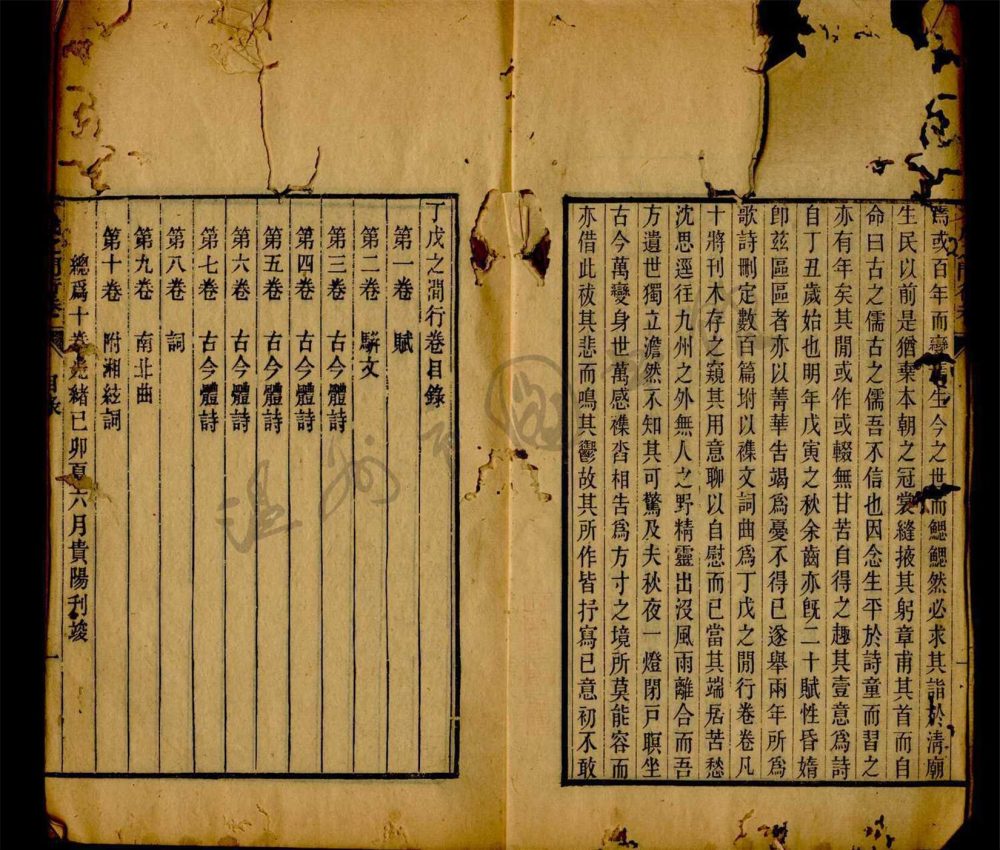 焉或百年而變焉生今之世而鰓鰓然必求其詣於淸廟
生民以前是猶棄本朝之冠裳縫掖其躬章甫其首而自
命曰古之儒古之儒吾不信也因念生平於詩童而習之
亦有年矣其閒或作或輟無甘苦自得之趣其壹意爲詩
自丁丑歲始也明年戊寅之秋余齒亦旣二十賦性昏媠
卽兹區區者亦以菁華告竭爲憂不得已遂舉兩年所爲
歌詩刪定數百篇坿以襍文詞曲爲丁戊之閒行卷卷凡
十將刊木存之窺其用意聊以自慰而已當其端居苦愁
沈思遥往九州之外無人之野精靈出沒風雨離合而吾
方遺世獨立澹然不知其可驚及夫秋夜一燈閉戸瞑坐
古今萬變身世萬感襍沓相告爲方寸之境所莫能容而
亦借此祓其悲而鳴其鬱故其所作皆抒寫已意初不敢
丁戊之澗行卷目錄
第一卷　賦
第二卷　駢文
第三卷　古今體詩
第四卷　古今體詩
第五卷　古今體詩
第六卷　古今體詩
第七卷　古今體詩
第八卷　詞
第九卷　南北曲
第十卷　附湘絃詞
總爲十卷緒己卯夏六月貴陽刊竣
目錄
一
溫州市圖